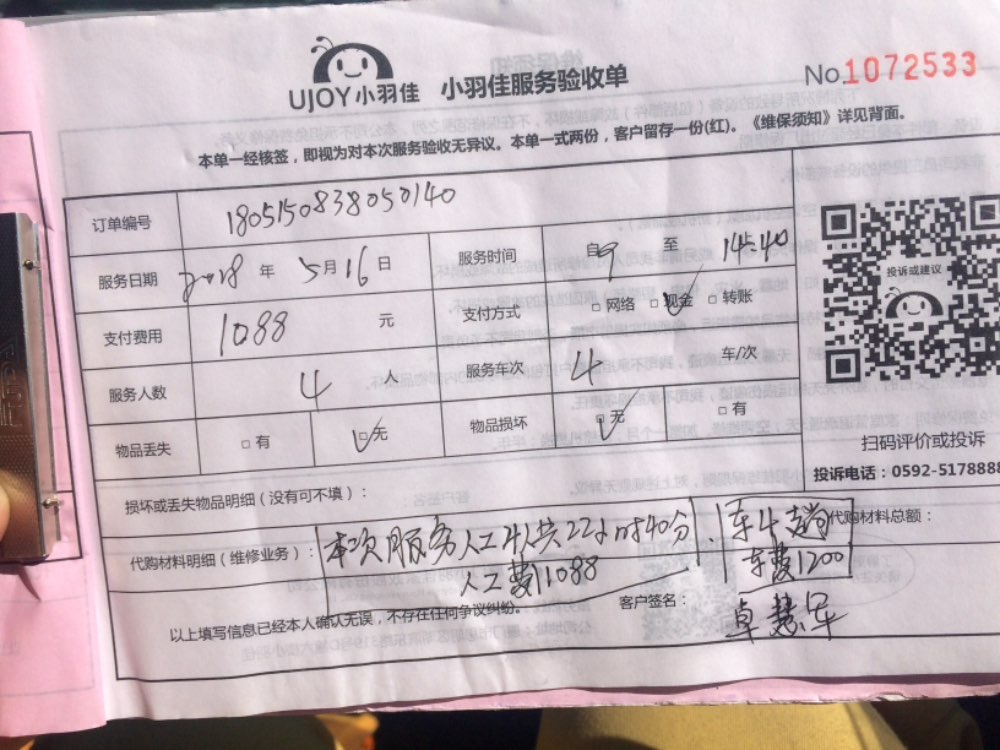 UJOY小羽佳 小羽佳服务验收单 No.1072533
本单一经核签，即视为对本次服务验收无异议。本单一式两份，客户留存一份(红)。《维保须知》详见背面。
订单编号 1805150838050140
服务日期 2018 年 5 月 16 日 服务时间 自 9 至 14:40
支付费用 1088 元 支付方式 □ 网络 □ 现金 □ 转账
服务人数 4 人 服务车次 4 车/次
物品丢失 □ 有 □ 无 物品损坏 □ 无 □ 有
损坏或丢失物品明细（没有可不填）：
代购材料明细（维修业务）： 本次服务人工4人共22小时40分 人工费1088
车4趟 车费1200
代购材料总额：
以上填写信息已经本人确认无误，不存在任何争议纠纷。 客户签名：
投诉或建议
扫码评价或投诉
投诉电话：0592-5178888